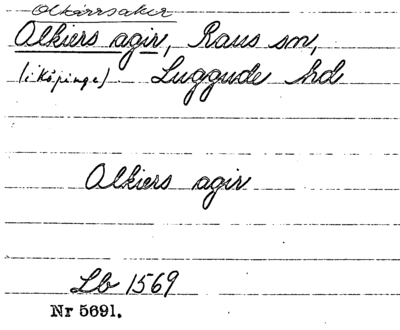 Olkärrsaker
Olkiers agir, Raus sn,
(i Köpinge). Luggude hd
Olkiers agir
Lb 1569
Nr 5691.